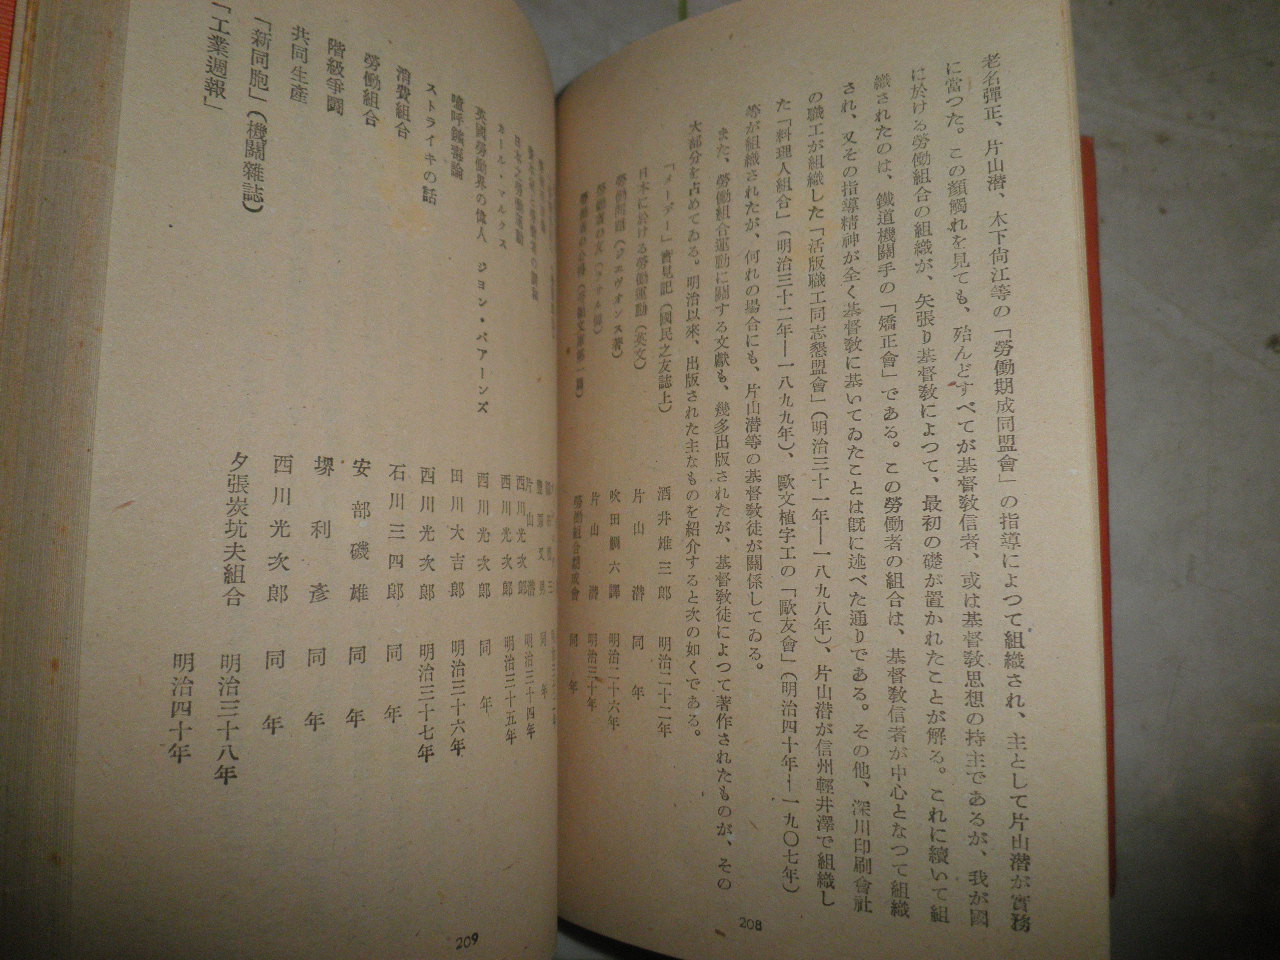 老名彈正、片山潛、木下尙江等の「勞働期成同盟會」の指導によつて組織され、主として片山潛が實務
に當つた。この顏觸れを見ても、殆んどすべてが基督敎信者、或は基督敎思想の持主であるが、我が國
に於ける勞働組合の組織が、矢張り基督敎によつて、最初の礎が置かれたことが解る。これに續いて組
織されたのは、鐵道機關手の「矯正會」である。この勞働者の組合は、基督敎信者が中心となつて組織
され、又その指導精神が全く基督敎に基いてゐたことは旣に述べた通りである。その他、深川印刷會社
の職工が組織した「活版職工同志懇盟會」（明治三十一年―一八九八年）、片山潛が信州輕井澤で組織し
た「料理人組合」（明治三十二年―一八九九年）、歐文植字工の「歐友會」（明治四十年―一九〇七年）
等が組織されたが、何れの場合にも、片山潛等の基督敎徒が關係してゐる。
また、勞働組合運動に關する文獻も、幾多出版されたが、基督敎徒によつて著作されたものが、その
大部分を占めてゐる。明治以來、出版された主なものを紹介すると次の如くである。
「メーデー」實見記（國民之友誌上） 酒井雄三郎 明治二十二年
日本に於ける勞働運動（英文） 片山潛 同年
勞働問題（ジエヴオンス著） 吹田鯛六譯 明治二十六年
勞働者の 片山潛 明治三十年
勞働者の 勞働組合期成會 同年
208
西川光次郎 明治三十四年
西川光次郎 明治三十五年
カール・マルクス 西川光次郎 同年
英國勞働界の偉人 ジヨン・バアーンズ 田川大吉郎 明治三十六年
噫呼 西川光次郎 明治三十七年
ストライキの話 石川三四郎 同年
消費組合 安部磯雄 同年
勞働組合
階級爭鬪 堺利彥 同年
共同生產 西川光次郎 同年
「新同胞」（機關雜誌） 夕張炭坑夫組合 明治三十八年
「工業週報」 明治四十年
209